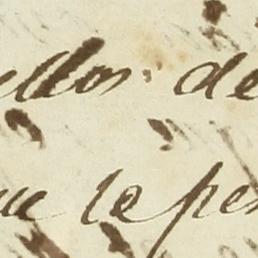 ellos de
que le per